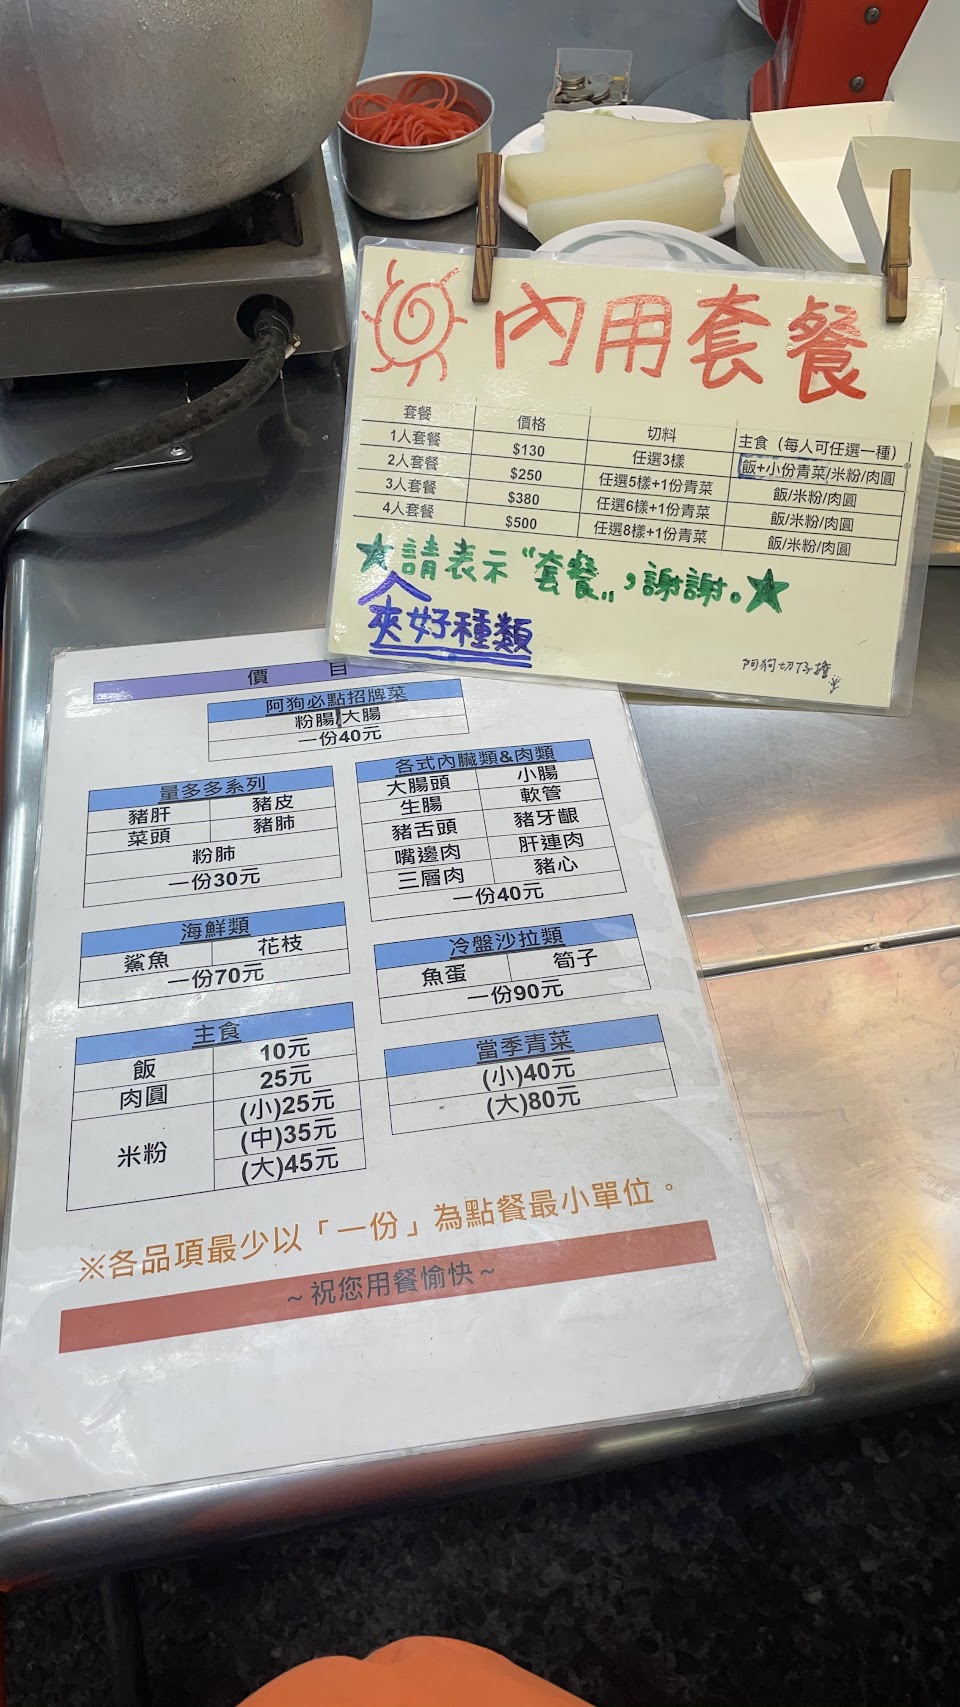 內用套餐
套餐 價格 切料 主食（每人可任選一種）
1人套餐 $130 任選3樣 飯+小份青菜/米粉/肉圓
2人套餐 $250 任選5樣+1份青菜 飯/米粉/肉圓
3人套餐 $380 任選6樣+1份青菜 飯/米粉/肉圓
4人套餐 $500 任選8樣+1份青菜 飯/米粉/肉圓
★請表示"套餐"，謝謝。★
夾好種類
阿狗切仔擔
價目
阿狗必點招牌菜
粉腸/大腸
一份40元
量多多系列
豬肝 豬皮
菜頭 豬肺
粉肺
一份30元
各式內臟類&肉類
大腸頭 小腸
生腸 軟管
豬舌頭 豬牙齦
嘴邊肉 肝連肉
三層肉 豬心
一份40元
海鮮類
鯊魚 花枝
一份70元
冷盤沙拉類
魚蛋 筍子
一份90元
主食
飯 10元
肉圓 25元
米粉 (小)25元
(中)35元
(大)45元
當季青菜
(小)40元
(大)80元
※各品項最少以「一份」為點餐最小單位。
~祝您用餐愉快~